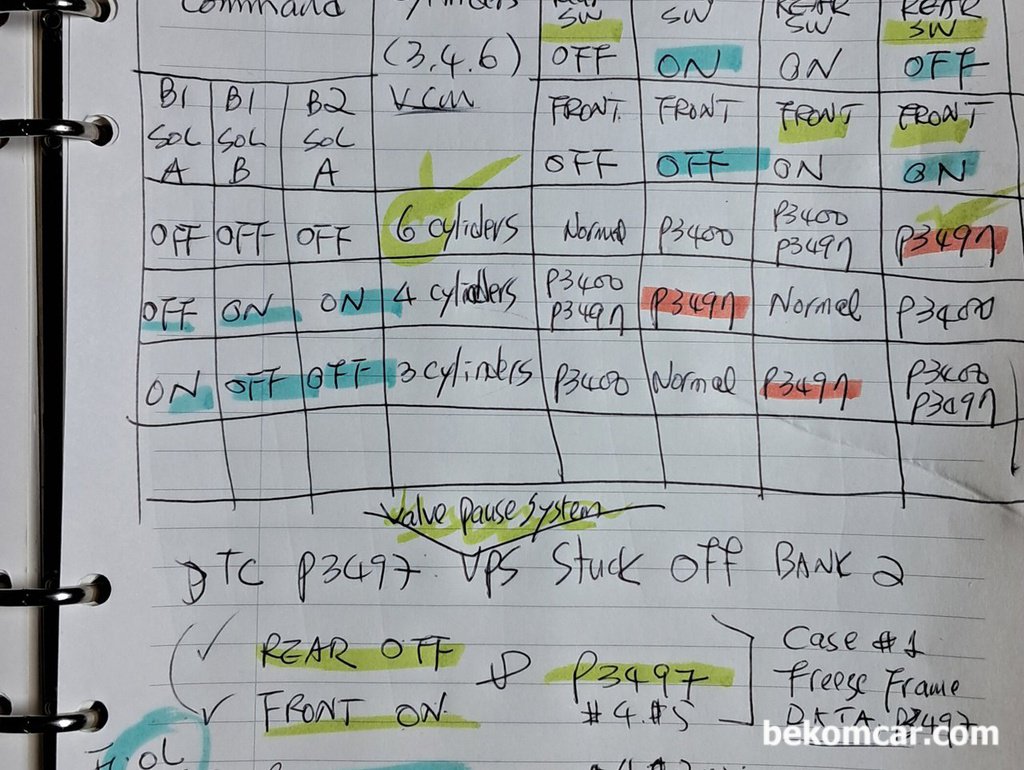 Command
Cylinders
SW
SW
REAR
SW
REAR
SW
(3,4,6)
OFF
ON
ON
OFF
B1
SOL
A
B1
SOL
B
B2
SOL
A
VCM
FRONT
OFF
FRONT
OFF
FRONT
ON
FRONT
ON
OFF OFF OFF 6 cyliders Normal P3400 P3400 P3497 P3497
OFF ON ON 4 cylinders P3400 P3497 P3497 Normal P3400
ON OFF OFF 3 cylinders P3400 Normal P3497 P3400 P3497
Valve pause System
DTC P3497: VPS Stuck Off BANK 2
REAR OFF
FRONT ON
P3497
#4.#5
Case #1
Freeze Frame
DATA P3497
bekomcar.com
OL